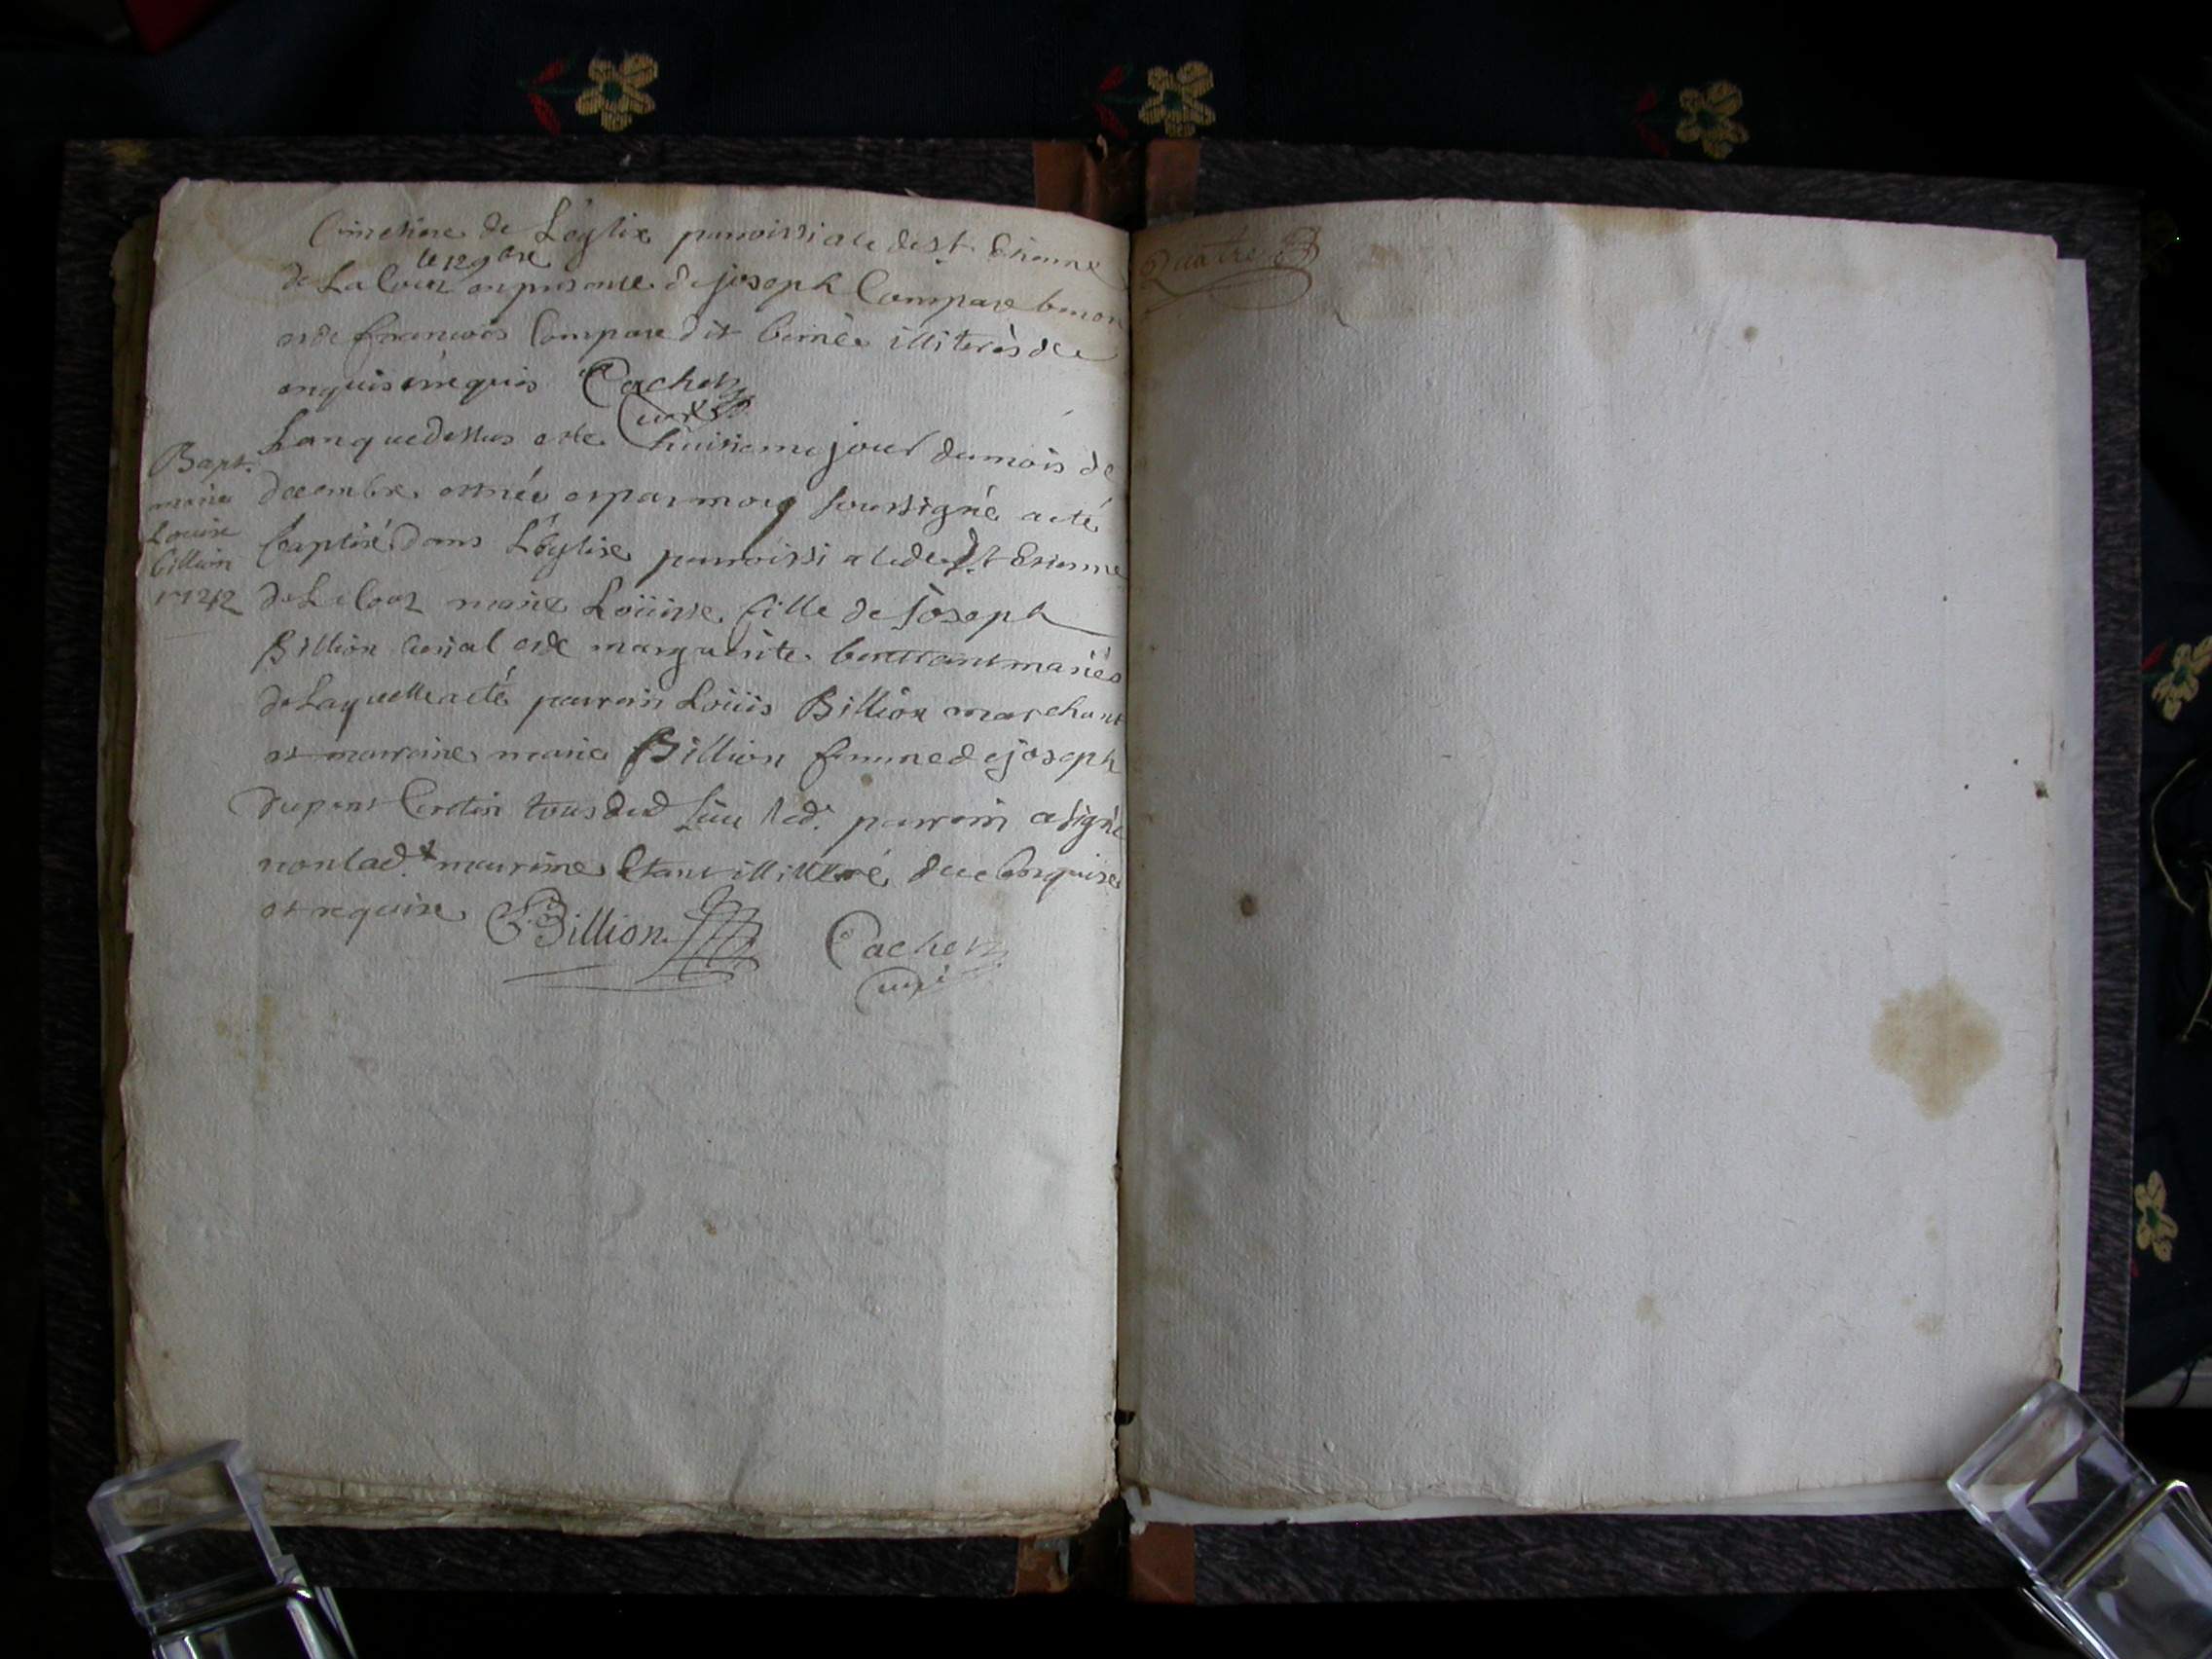 Cimetiere de Léglize parroissiale de St. Etienne
le 12 9bre
de La Cour en presence de joseph Compare
et de francois Compare dit illiterés de ce
enquis et requis Cachet
Curé
Lan que dessus et le huitieme jour du mois de
decembre est née et par moy soussigné a eté
baptisé dans Léglise parroissiale de St Etienne
de La Cour marie Loüise fille de joseph
Billion et de marguerite mariés
de Laquelle a eté parrain Loüis Billion marchant
et marraine marie Billion femme de joseph
dupont tous dud. Lieu led. parrain a signé
non lad.te marraine Etant illitteré de ce enquise
et requise LBillion Cachet
curé
Bapt.
marie
Louise
billion
1742
Quatre